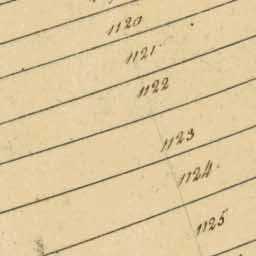 1120
1121
1122
1123
1124
1125